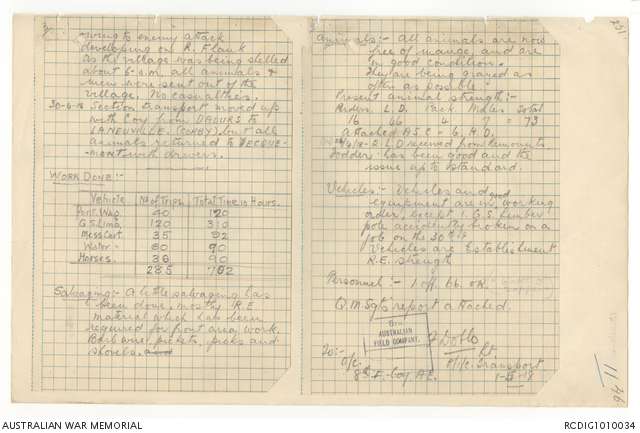 3/
owing to enemy attack
developing on R. Flank
As the village was being shelled
about 6 a.m. all animals &
men were sent out of the
village. No casualties.
30-6-18 Section transport moved up
with Coy from DAOURS to
LANEUVILLE. (CORBY) but all
animals returned to
with drivers.
WORK DONE:-
Vehicle No of Trips Total Time in Hours.
Pont. Wag. 40 120
G.S. Limb. 120 310
Mess Cart. 35 92
Water - 60 90
Horses. 30 90
285 702
Salvaging:- A little salvaging has
been done, mostly R.E
material which has been
required for front area work.
Barb wire, pickets, picks and
shovels. and
Animals:- All animals are now
free of mange, and are
in good condition.
They are being grazed as
often as possible.
Present animal strength:-
Riders L.D. Pack Mules Total
16 66 4 7 = 73
attached A.S.C = 6, H.D.
2 L.D received from remounts.
Fodder has been good and the
issue up to standard
Vehicles:- Vehicles and good
equipment are in working
order, except 1. G.S. limber
pole accidently broken on a
job on the 30th.
Vehicles are Establishment
R.E. strength
Personnel:- 1 off. 66. OR.
Q.M. Sgts report attached.
8TH
AUSTRALIAN
FIELD COMPANY.
To:-
O/c.
8th F. Coy A.E.
Lt
O/i/c. Transport
AUSTRALIAN WAR MEMORIAL
RCDIG1010034